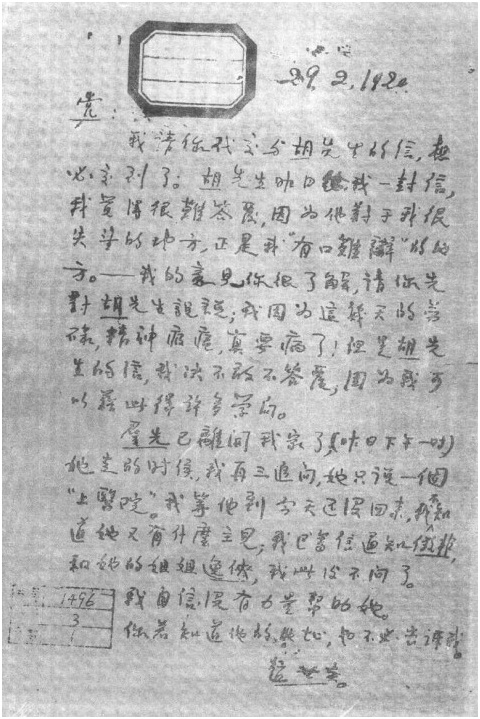 29.2.1920
党：
我請你代交与胡先生的信，想
必交到了。胡先生昨日給我一封信，
我覺得很難答覆，因为他對于我很
失望的地方，正是我“有口難辯”的地
方。——我的意見你很了解，請你先
對胡先生說說；我因为這幾天的勞
碌，精神疲憊，真要病了！但是胡先
生的信，我决不敢不答覆，因为我可
以藉此得許多学问。
已離開我家了（昨日下午一时）
她走的时候，我再三追问，她只説一個
“上醫院”。我等他到今天还沒回来，我不知
道她又有什麼主見；我已寫信通知
和她的姐姐，我此後不问了。
我自信沒有力量幫的她。
你若知道他的，也不必告訴我。
1496
3
1